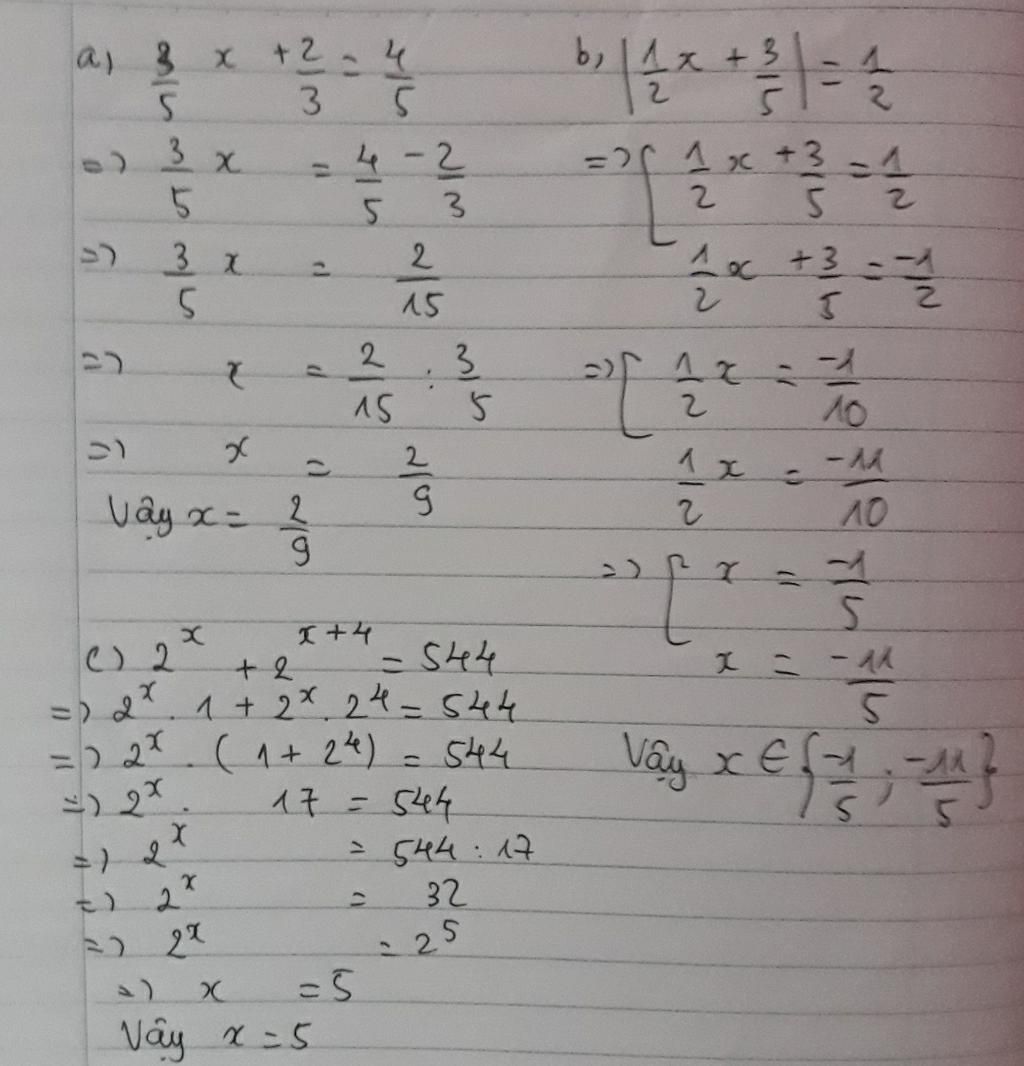 a) 3/5 x + 2/3 = 4/5
=> 3/5 x = 4/5 - 2/3
=> 3/5 x = 2/15
=> x = 2/15 : 3/5
=> x = 2/9
Vậy x = 2/9
b) |1/2 x + 3/5| = 1/2
=> [ 1/2 x + 3/5 = 1/2
1/2 x + 3/5 = -1/2
=> [ 1/2 x = -1/10
1/2 x = -11/10
=> [ x = -1/5
x = -11/5
Vậy x ∈ {-1/5 ; -11/5}
c) 2^x + 2^(x+4) = 544
=> 2^x . 1 + 2^x . 2^4 = 544
=> 2^x . (1 + 2^4) = 544
=> 2^x . 17 = 544
=> 2^x = 544 : 17
=> 2^x = 32
=> 2^x = 2^5
=> x = 5
Vậy x = 5